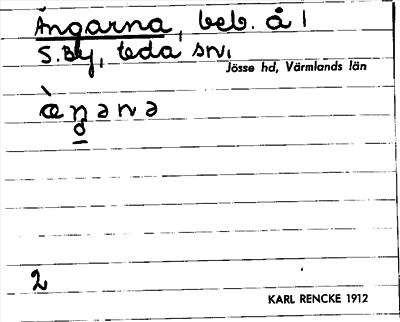 Ängarna, beb. å 1
S. By, Eda sn,
Jösse hd, Värmlands län
2
KARL RENCKE 1912